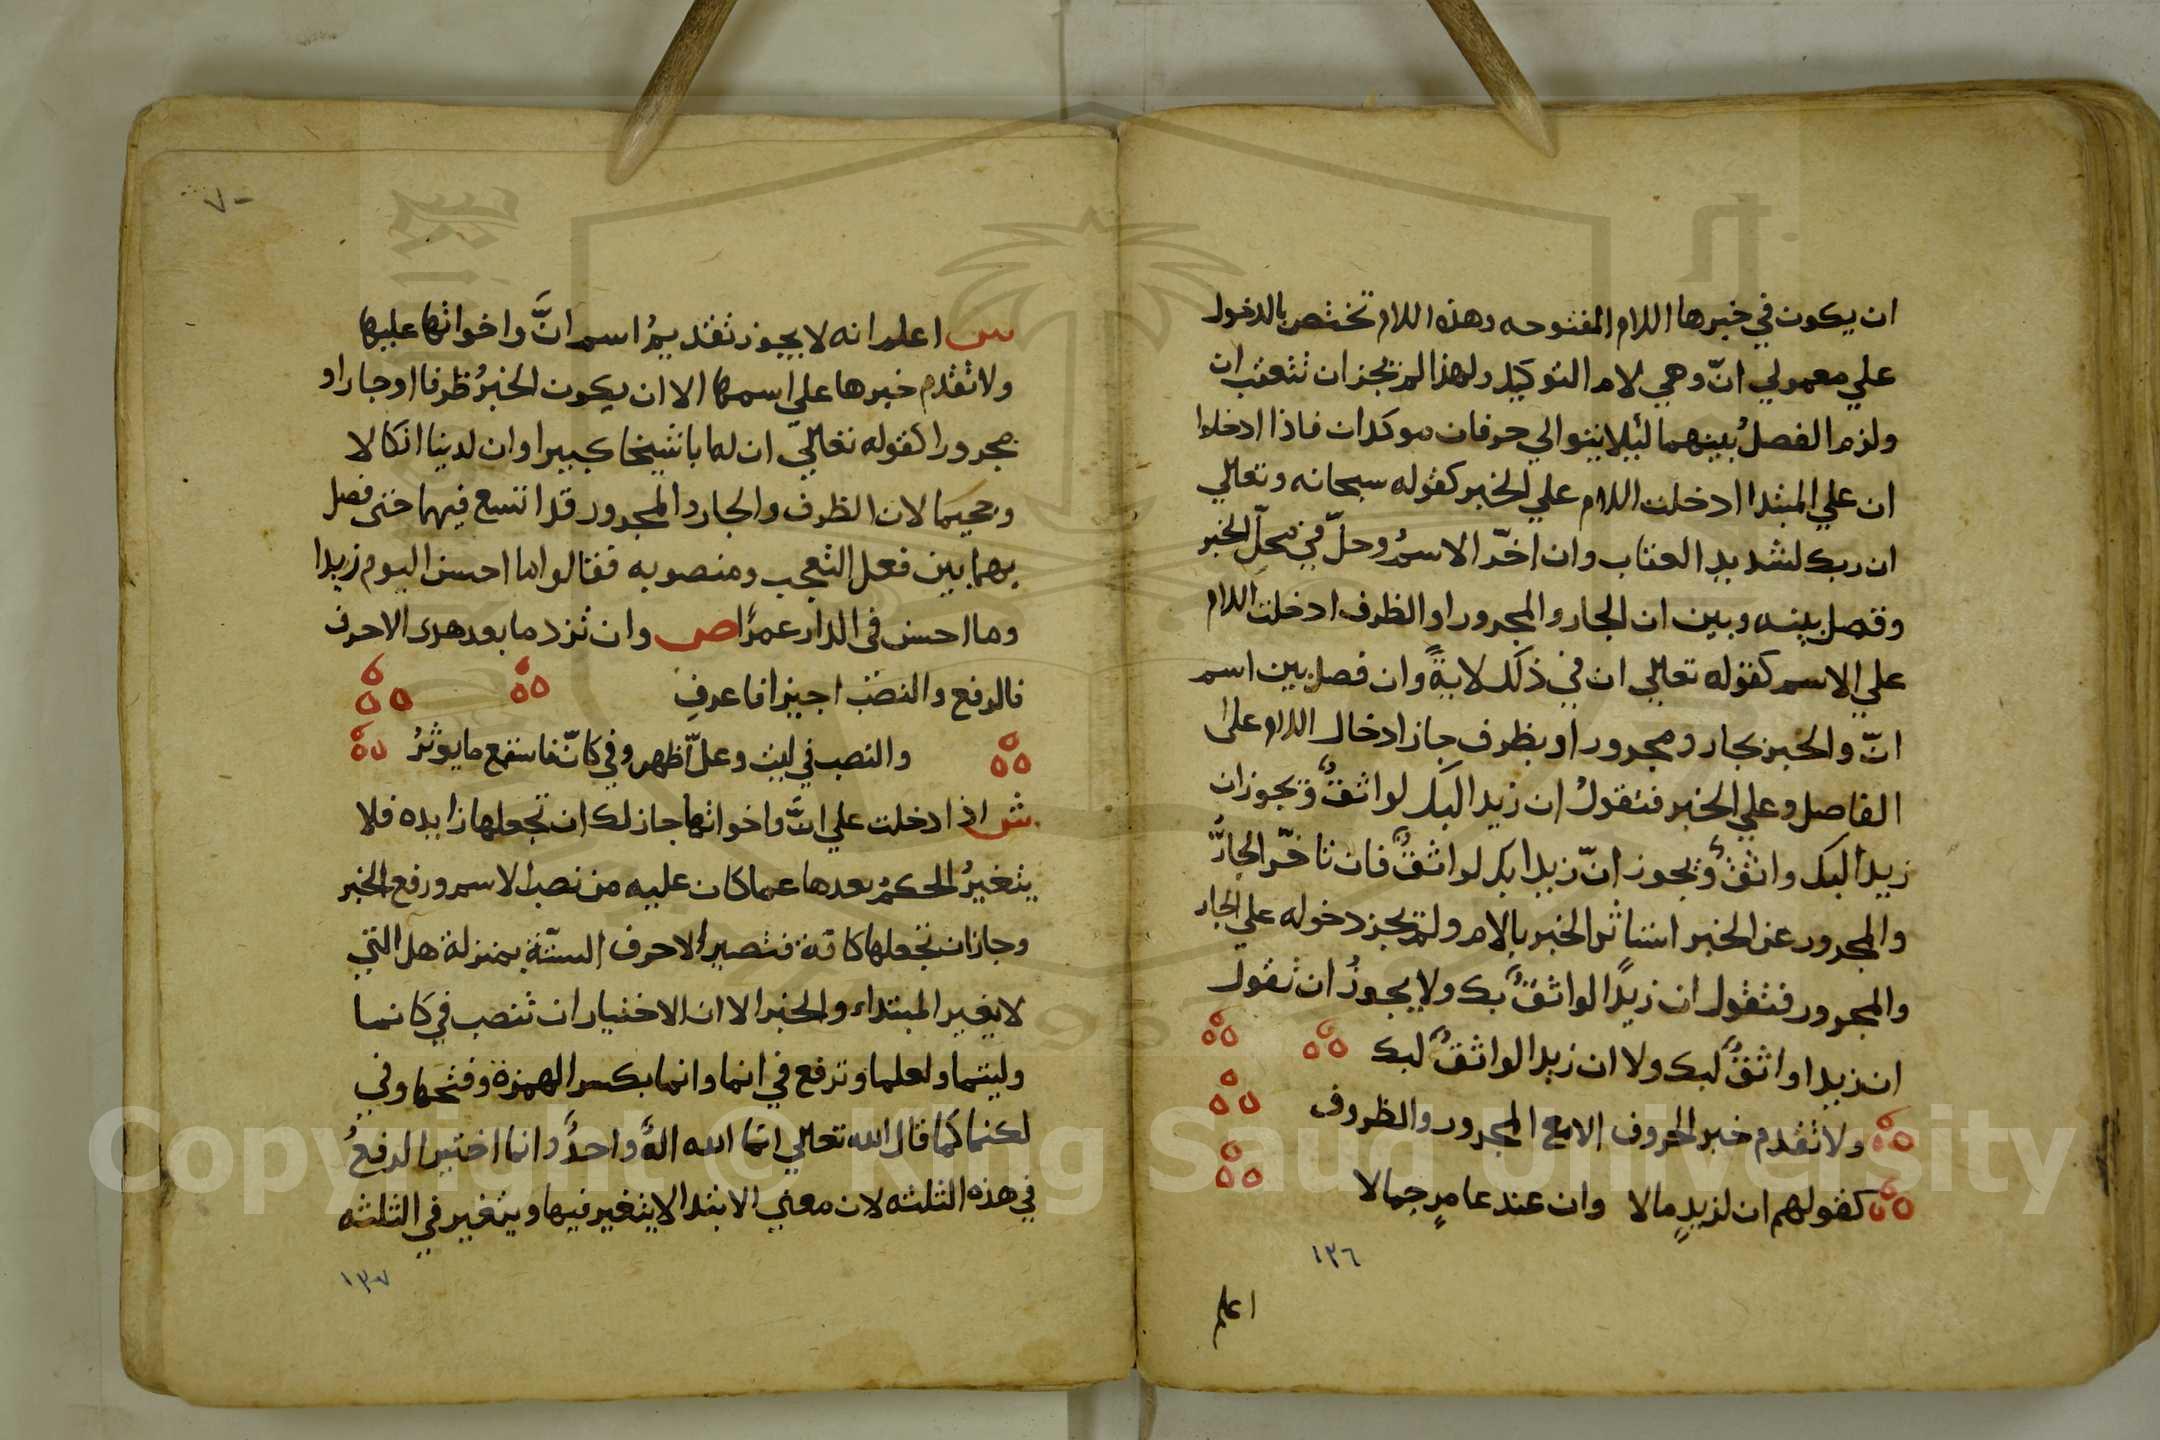 ان يكون في خبرها اللام المفتوحه وهذه اللام تختص بالدخول
علي معمولي انّ وهي لام التوكيد ولهذا لم يجز ان تتعقب ان
ولزم الفصلُ بينهما لئلا يتوالي حرفان موكدان فاذا ادخلوا
ان علي المبتدا ادخلت اللام علي الخبر كقوله سبحانه وتعالي
ان ربك لشديد العقاب وان اخّر الاسمُ وحلّ في محلّ الخبر
وفصل بينه وبين ان الجار والمجرور او الظرف ادخلت اللام
علي الاسم كقوله تعالي ان في ذلك لايةً وان فصل بين اسم
انّ والخبر بجار ومجرور او بظرف جاز ادخال اللام علي
الفاصل وعلي الخبر فتقولُ ان زيدا لبك لواثقٌ ويجوز ان
زيدا لبك واثقٌ ويجوز انّ زيدا بك لواثقٌ فان تاخّر الجارُّ
والمجرور عن الخبر استاثر الخبر بالام ولم يجز دخوله علي الجار
والمجرور فتقول ان زيدًا لواثقٌ بك ولا يجوزُ ان تقول
ان زيدا واثقٌ لبك ولا ان زيدا لواثقٌ لبك
ولا تقدم خبر الحروف الا مع المجرور والظروف
كقولهم ان لزيدٍ مالا وان عند عامرٍ جمالا
١٣٦
اعلم
٧٠
س اعلم انه لا يجوز تقديمُ اسم انَّ واخواتها عليها
ولا تقدم خبرها علي اسمها الا ان يكون الخبرُ ظرفا او جارا و
مجرورا كقوله تعالي ان له ابا شيخا كبيرا وان لدينا انكالا
وجحيما لان الظرف والجار والمجرور قد اتسع فيهما حتى فصل
بهما بين فعل التعجب ومنصوبه فقالوا ما احسن اليوم زيدا
وما احسن في الدار عمرًا ص وان تزد ما بعد هذي الاحرف
فالرفع والنصب اجيزا فاعرفِ
والنصب في ليت وعلّ اظهر وفي كانّ فاستمع ما يوثرُ
ش اذا دخلت علي انَّ واخواتها جاز لك ان تجعلها زايده فلا
يتغيرُ الحكمُ بعدها عما كان عليه من نصب الاسم ورفع الخبر
وجاز ان تجعلها كافة فتصير الاحرف الستّة بمنزلة هل التي
لا يغير المبتداء والخبر الا ان الاختيار ان تنصب في كانما
وليتما ولعلما وترفع في انما وانما بكسر الهمزة وفتحها وفي
لكنما كما قال الله تعالي انّما الله الهٌ واحدٌ وانما اختير الرفعُ
في هذه الثلثه لان معني الابتدا لا يتغير فيها ويتغير في الثلثه
١٣٧
Copyright © King Saud University